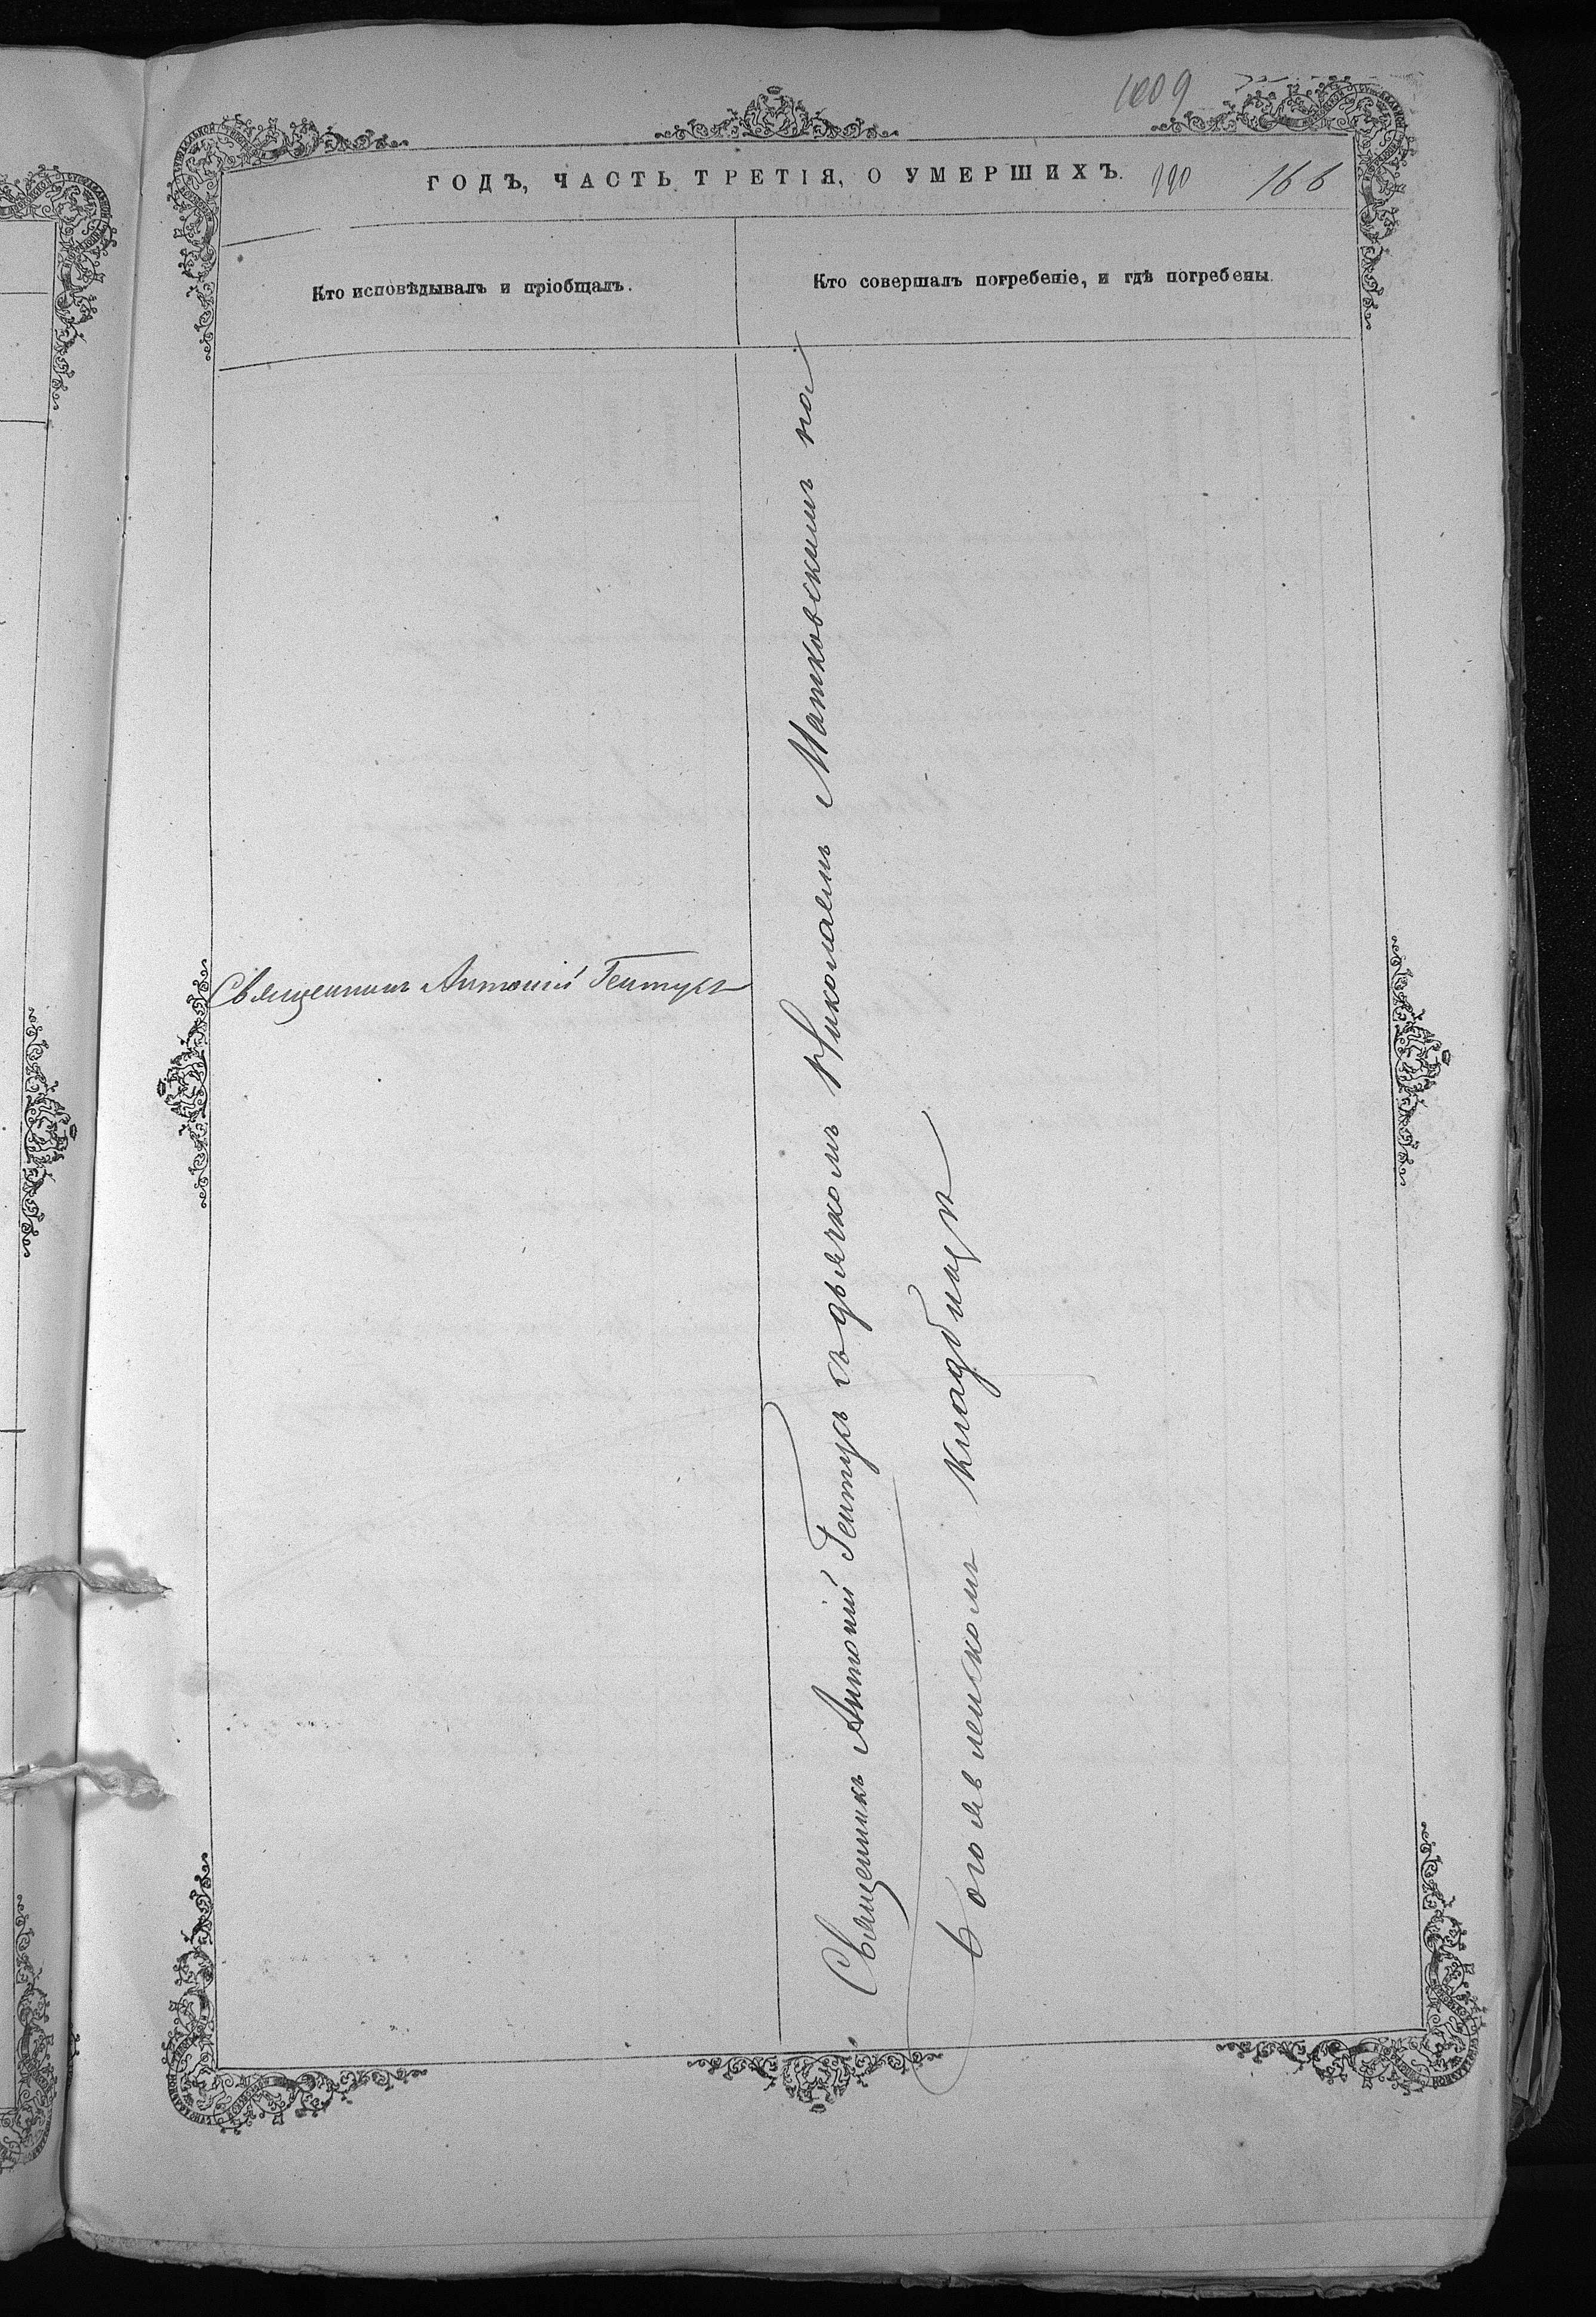 1009
ГОДЪ, ЧАСТЬ ТРЕТІЯ, О УМЕРШИХЪ.
990 166
Кто исповѣдывалъ и пріобщалъ.
Кто совершалъ погребеніе, и гдѣ погребены.
Священникъ Антоній Гентукъ
Священникъ Антоній Гентукъ съ дьячкомъ Николаемъ Матковскимъ на
Богоявленскомъ кладбищѣ